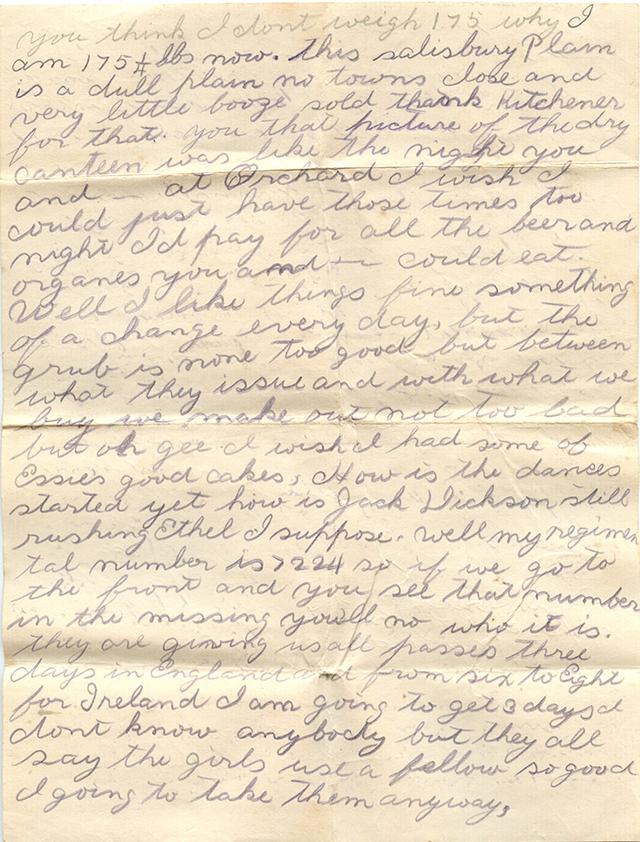 you think I dont weigh 175 why I
am 175 ½ lbs now. this salisbury Plain
is a dull plain no towns close and
very little booze sold thank Kitchener
for that. you that picture of the dry
canteen was like the night you
and — at Orchard I wish I
could just have those times too
night I'd pay for all the beer and
organes you and — could eat.
Well I like things fine something
of a change every day, but the
grub is none too good but between
what they issue and with what we
buy we make out not too bad
but oh gee I wish I had some of
Essies good cakes, How is the dances
started yet how is Jack Dickson still
rushing Ethel I suppose. Well my regimen
tal number is 7224 so if we go to
the front and you see that number
in the missing youll no who it is.
they are giving us all passes three
days in England and from six to Eight
for Ireland I am going to get 3 days I
dont know anybody but they all
say the girls use a fellow so good
I going to take them anyway,